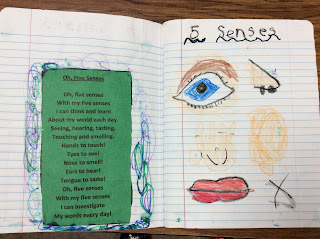 Oh, Five Senses
Oh, five senses
With my five senses
I can think and learn
About my world each day.
Seeing, hearing, tasting,
Touching and smelling.
Hands to touch!
Eyes to see!
Nose to smell!
Ears to hear!
Tongue to taste!
Oh, five senses
With my five senses
I can investigate
My words every day!
5 Senses